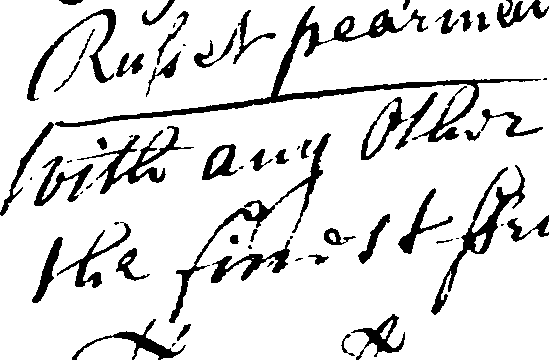 Russet pearmai
with any other
the finest fru